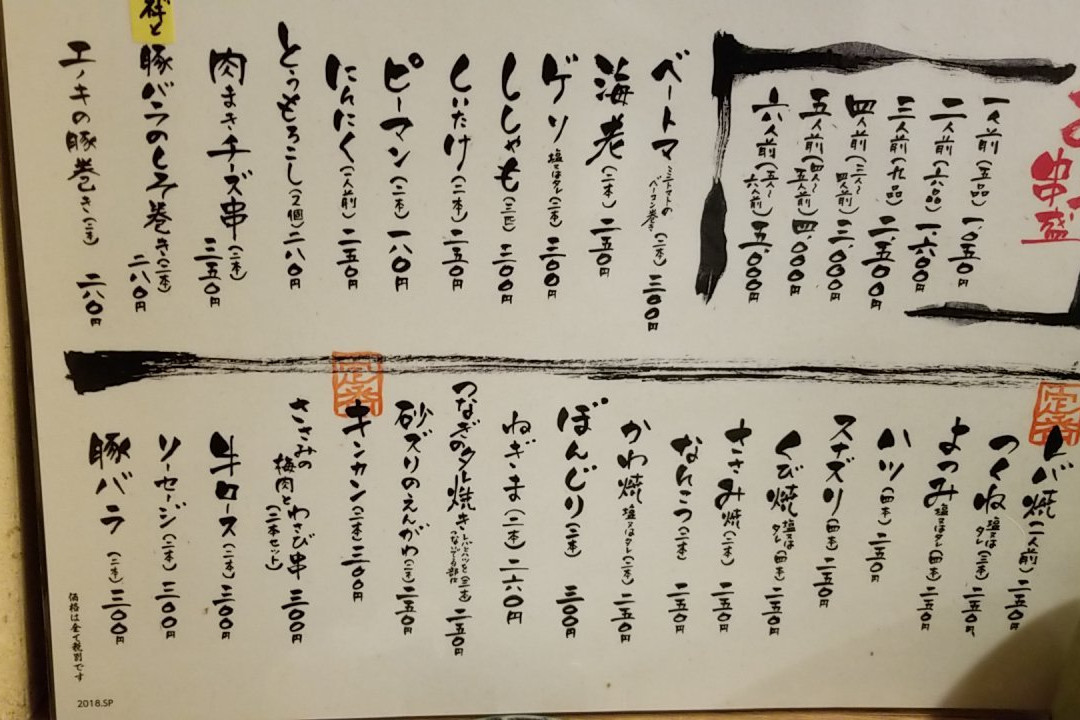 串盛
一人前(五品)一、〇五〇円
二人前(六品)一、六〇〇円
三人前(九品)二、五〇〇円
四人前(三人〜四人前)三、〇〇〇円
五人前(四人〜五人前)四、〇〇〇円
六人前(五人〜六人前)五、〇〇〇円
ベートマ ミニトマトのベーコン巻き(二本)三〇〇円
海老(二本)二五〇円
ゲソ 塩又はタレ(二本)三〇〇円
ししゃも(三匹)三〇〇円
しいたけ(二本)二五〇円
ピーマン(二本)一八〇円
にんにく(一人前)二五〇円
とうもろこし(2個)二八〇円
肉まきチーズ串(二本)三五〇円
豚バラのしそ巻き(二本)二八〇円
エノキの豚巻き(二本)二八〇円
定番
レバ焼(一人前)二五〇円
つくね 塩又はタレ(三本)二五〇円
よつみ 塩又はタレ(四本)二五〇円
ハツ(四本)二五〇円
スナズリ(四本)二五〇円
くび焼 塩又はタレ(四本)二五〇円
ささみ焼(二本)二五〇円
なんこつ(二本)二五〇円
かわ焼 塩又はタレ(二本)二五〇円
ぼんじり(三本)三〇〇円
ねぎま(二本)二六〇円
つなぎのタレ焼き レバーとハツをつないでる部位(二本)二五〇円
砂ズリのえんがわ(二本)二五〇円
定番
キンカン(二本)三〇〇円
ささみの梅肉とわさび串(二本セット)三〇〇円
牛ロース(二本)三〇〇円
ソーセージ(二本)三〇〇円
豚バラ(二本)三〇〇円
価格は全て税別です
2018.SP